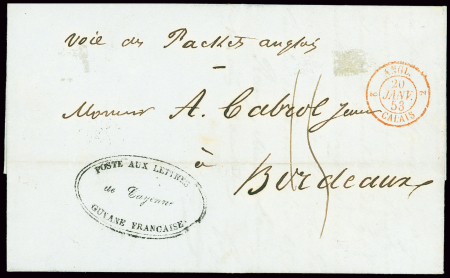 voie des Packets anglais
ANGL.
2 20 2
JANV.
53
CALAIS
Monsieur A. Cabrol Jeune
15
à
Bordeaux
POSTE AUX LETTRES
de Cayenne
GUYANE FRANCAISE